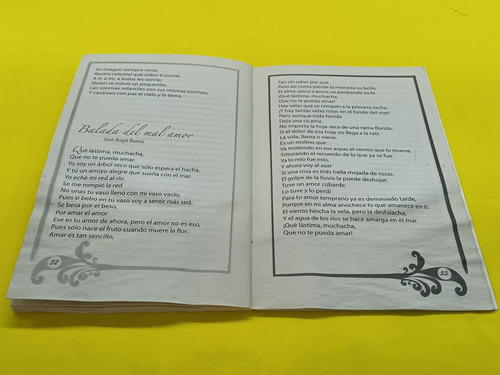 Su imagen siempre verás,
Rostro celestial que sobre ti sonríe,
A ti, a mí, a todos les sonríe;
Quien se volvió un pequeñito.
Las sonrisas infantiles son sus mismas sonrisas,
Y cautivan con paz el cielo y la tierra.
Balada del mal amor
José Ángel Buesa
Qué lástima, muchacha,
Que no te pueda amar.
Yo soy un árbol seco que sólo espera el hacha,
Y tú un arroyo alegre que sueña con el mar.
Yo eché mi red al río
Se me rompió la red
No unas tu vaso lleno con mi vaso vacío,
Pues si bebo en tu vaso voy a sentir más sed.
Se besa por el beso,
Por amar el amor
Ese es tu amor de ahora, pero el amor no es eso,
Pues sólo nace el fruto cuando muere la flor.
Amar es tan sencillo,
52
Tan sin saber por qué
Pero así como pierde la moneda su brillo,
El alma, poco a poco, va perdiendo su fe.
¡Qué lástima, muchacha,
Que no te pueda amar!
Hay velas que se rompen a la primera racha,
¡Y hay tantas velas rotas en el fondo del mar!
Pero aunque toda herida
Deja una cicatriz,
No importa la hoja seca de una rama florida,
Si el dolor de esa hoja no llega a la raíz.
La vida, llama o nieve,
Es un molino que
Va moliendo en sus aspas el viento que lo mueve,
Triturando el recuerdo de lo que ya se fue.
Ya lo mío fue mío,
Y ahora voy al azar
Si una rosa es más bella mojada de rocío,
El golpe de la lluvia la puede deshojar.
Tuve un amor cobarde.
Lo tuve y lo perdí
Para tu amor temprano ya es demasiado tarde,
Porque en mi alma anochece lo que amanece en ti.
El viento hincha la vela, pero la deshilacha,
Y el agua de los ríos se hace amarga en el mar
¡Qué lástima, muchacha,
Que no te pueda amar!
53